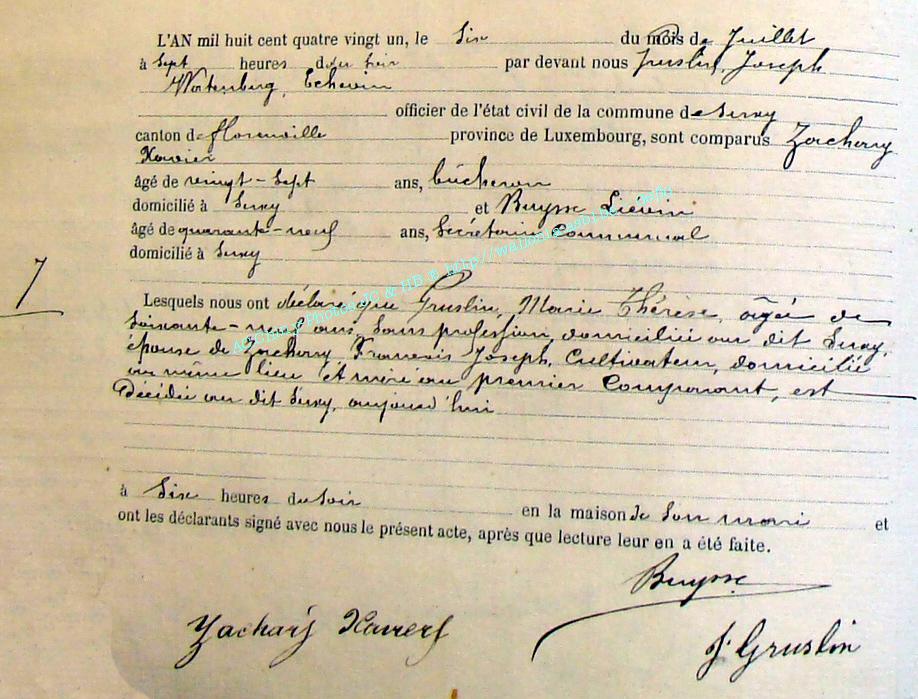 L'AN mil huit cent quatre vingt un, le Six du mois de Juillet
à Sept heures du soir par devant nous Gruslin, Joseph
Wortenburg, Echevin
officier de l'état civil de la commune de Suxy
canton de florenville province de Luxembourg, sont comparus Zachary
Xavier
âgé de vingt-Sept ans, bûcheron
domicilié à Suxy et Buysse Lievin
âgé de quarante-neuf ans, Secrétaire Communal
domicilié à Suxy
7
Lesquels nous ont déclaré que Gruslin, Marie Thérèse, âgée de
Soixante-neuf ans, Sans profession, domiciliée au dit Suxy,
épouse de Zachary François Joseph, Cultivateur, domicilié
au même lieu et mère au premier Comparant, est
Décédée au dit Suxy, aujourd'hui
à Six heures du Soir en la maison de Son mari et
ont les déclarants signé avec nous le présent acte, après que lecture leur en a été faite.
Buysse
Zachary Xavier
J. Gruslin